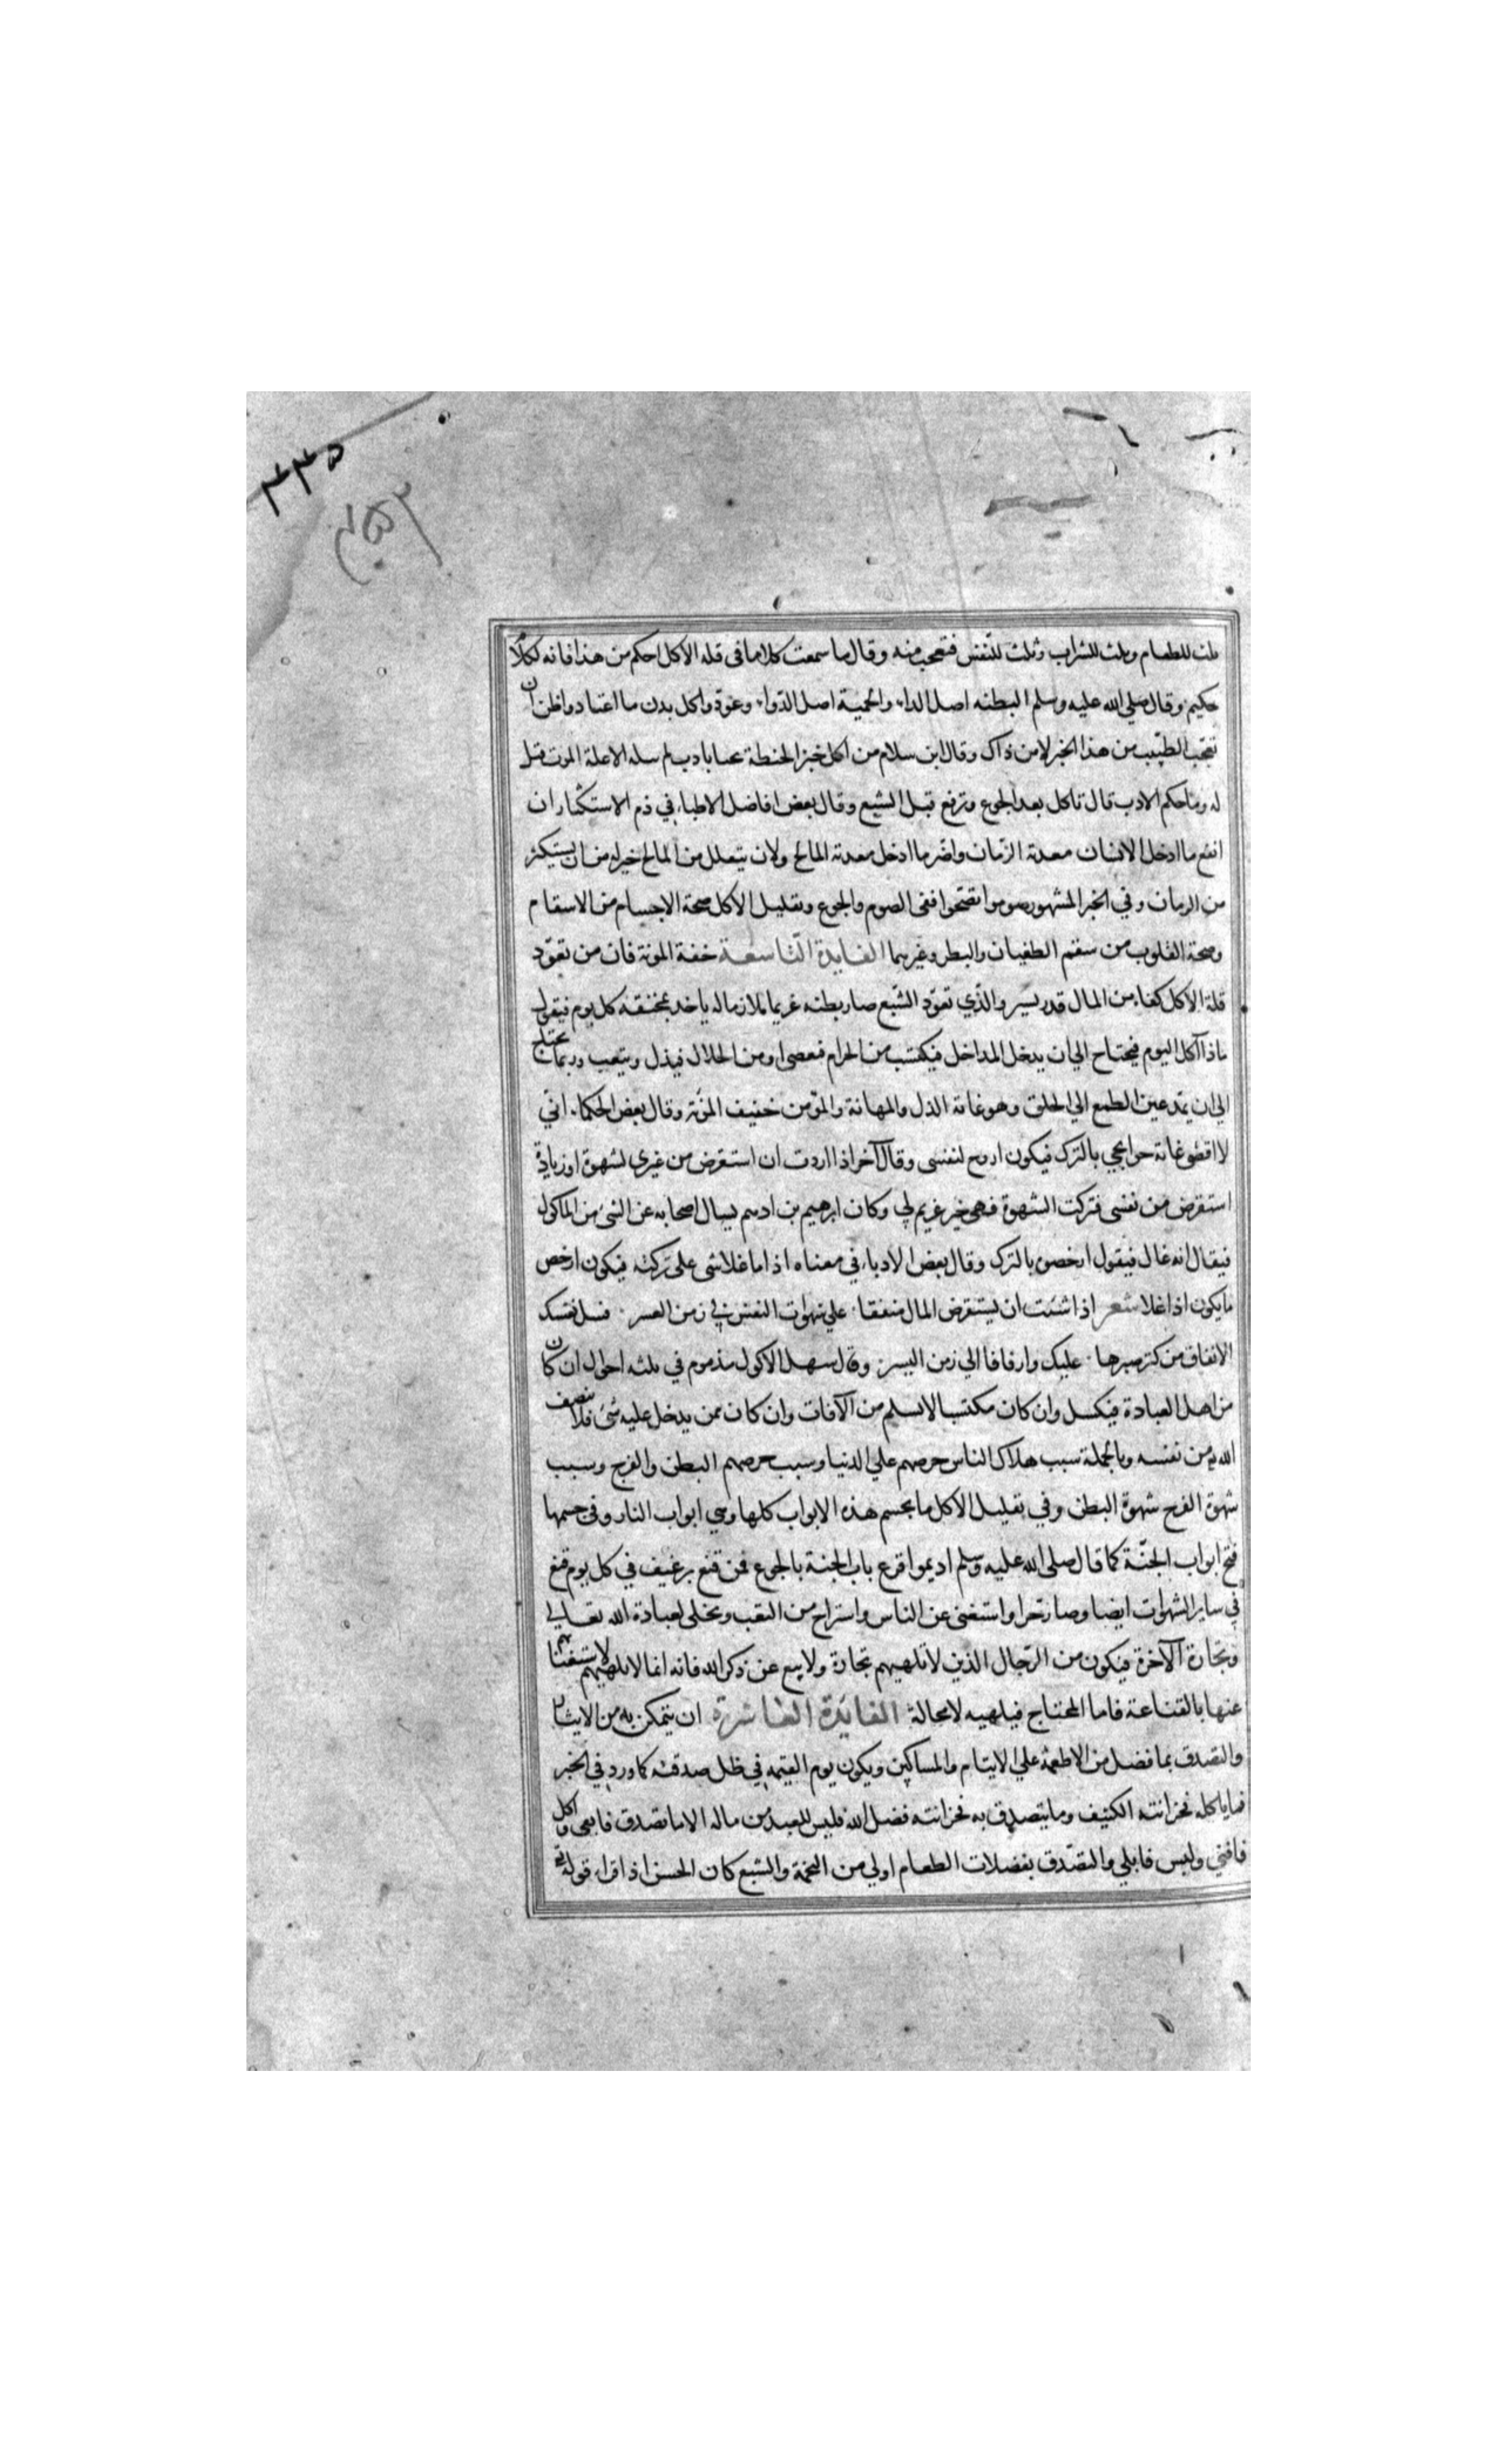 ٣٣٥
ثلث للطعام وثلث للشراب وثلث للنفس فتعجب منه وقال ما سمعت كلاما في قله الاكل احكم من هذا فانه لكلام
حكيم وقال صلي الله عليه وسلم البطنه اصل الداء والحمية اصل الدواء وعودوا كل بدن ما اعتاد واظن ان
تعجب الطبيب من هذا الخبر لا من ذاك وقال ابن سلام من اكل خبز الحنطة بادب لم الا علة الموت قيل
له وما حكم الادب قال تاكل بعد الجوع وترفع قبل الشبع وقال بعض افاضل الاطباء في ذم الاستكثار ان
انفع ما ادخل الانسان معدته الرمان واضر ما ادخل معدته المالح ولان يتعلل من المالح خير له من ان يستكثر
من الرمان وفي الخبر المشهور صوموا تصحوا ففي الصوم والجوع وتقليل الاكل صحة الاجسام من الاسقام
وصحة القلوب من سقم الطغيان والبطر وغيرهما الفايدة التاسعة خفة المونة فان من تعود
قلة الاكل كفاه من المال قدر يسير والذي تعود الشبع صار بطنه غريما ملازما له ياخذ بمخنقه كل يوم فيقول
ماذا آكل اليوم فيحتاج الي ان يدخل المداخل فيكتسب من الحرام فعصى او من الحلال فيذل ويتعب وربما يحتاج
الي ان يمد عين الطمع الي الخلق وهو غاية الذل والمهانة والمؤمن خفيف المؤنة وقال بعض الحكماء اني
لا اقضي غاية حوايجي بالترك فيكون اروح لنفسي وقال آخر اذا اردت ان استقرض من غيري لشهوة او زيادة
استقرض من نفسي فتركت الشهوة فهي خير غريم لي وكان ابرهيم بن ادهم يسال اصحابه عن الشئ من الماكول
فيقال انه غال فيقول ارخصوه بالترك وقال بعض الادباء في معناه اذا ما غلا شي على تركته فيكون ارخص
ما يكون اذا غلا شعر اذا شئت ان تستقرض المال منفقا علي شهوات النفس في زمن العسر فسل نفسك
الانفاق من كنز صبرها عليك وارفاقا الي زمن اليسر وقال سهل الاكول مذموم في ثلثه احوال ان كان
من اهل العبادة فيكسل وان كان مكتسبا لا يسلم من الآفات وان كان ممن يدخل عليه شئ فلا ينصف
الله من نفسه وبالجملة سبب هلاك الناس حرصهم علي الدنيا وسبب حرصهم البطن والفرج وسبب
شهوة الفرج شهوة البطن وفي تقليل الاكل ما يحسم هذه الابواب كلها وهي ابواب النار وفي حسمها
فتح ابواب الجنة كما قال صلى الله عليه وسلم اديموا قرع باب الجنة بالجوع فمن قنع برغيف في كل يوم قنع
في ساير الشهوات ايضا وصار حرا واستغنى عن الناس واستراح من التعب وتخلى لعبادة الله تعالي
وتجارة الآخرة فيكون من الرجال الذين لا تلهيهم تجارة ولا بيع عن ذكر الله فانه انما لا تلهيهم لاستغنائهم
عنها بالقناعة فاما المحتاج فيلهيه لا محالة الفايدة العاشرة ان يتمكن به من الايثار
والتصدق بما فضل من الاطعمة علي الايتام والمساكين ويكون يوم القيمه في ظل صدقته كما ورد في الخبر
فما ياكله فخزانته الكنيف وما يتصدق به فخزانته فضل الله فليس للعبد من ماله الا ما تصدق فابقى او اكل
فافني وليس فابلي والتصدق بفضلات الطعام اولي من التخمة والشبع كان الحسن اذا قراء قوله تع